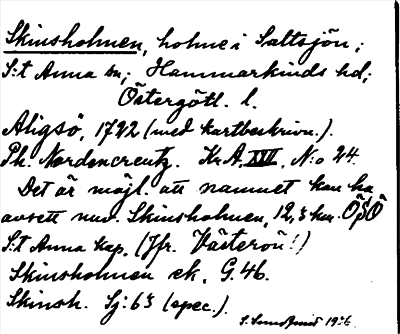 Skinsholmen, holme i Saltsjön;
S:t Anna sn; Hammarkinds hd;
Östergötl. l.
Aligsö, 1722 (med kartbeskrivn.).
Ph. Nordencreutz. Kr.A. XVI, N:o 24.
Det är möjl. att namnet kan ha
avsett nuv. Skinsholmen, 12,5 km. ÖSÖ
S:t Anna kap. (Jfr. Västerön!)
Skinsholmen ek. G. 46.
Skinsh. Sj: 65 (spec.).